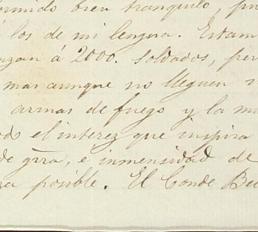 bien tranquilo, pu
los de mi lengua. Estam
nzan á 2000. soldados, per
mas aunque no lleguen
armas de fuego y la m
el interez que inspira
de grra, e inmensidad de
posible. El Conde